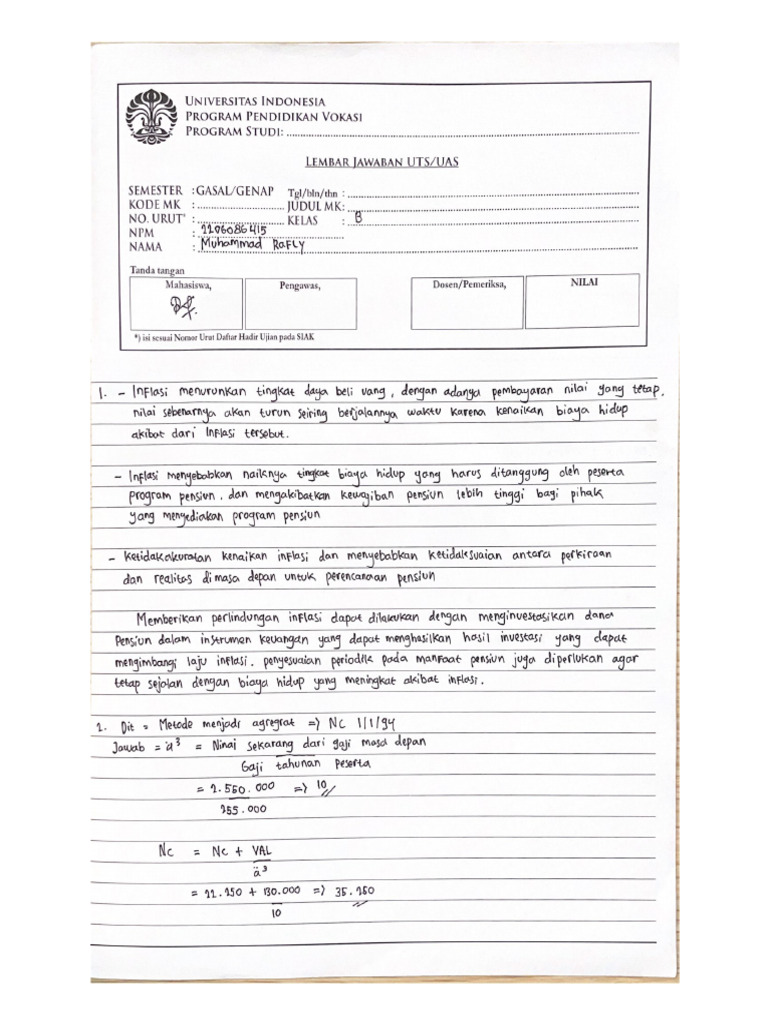 UNIVERSITAS INDONESIA
PROGRAM PENDIDIKAN VOKASI
PROGRAM STUDI:
LEMBAR JAWABAN UTS/UAS
SEMESTER : GASAL/GENAP Tgl/bln/thn :
KODE MK : JUDUL MK:
NO. URUT* : KELAS : B
NPM : 2206086415
NAMA : Muhammad Rafly
Tanda tangan
Mahasiswa, Pengawas, Dosen/Pemeriksa, NILAI
*) isi sesuai Nomor Urut Daftar Hadir Ujian pada SIAK
1. - Inflasi menurunkan tingkat daya beli uang, dengan adanya pembayaran nilai yang tetap,
nilai sebenarnya akan turun seiring berjalannya waktu karena kenaikan biaya hidup
akibat dari inflasi tersebut.
- Inflasi menyebabkan naiknya tingkat biaya hidup yang harus ditanggung oleh peserta
program pensiun, dan mengakibatkan kewajiban pensiun lebih tinggi bagi pihak
yang menyediakan program pensiun
- Ketidakakuratan kenaikan inflasi dan menyebabkan ketidaksuaian antara perkiraan
dan realitas di masa depan untuk perencanaan pensiun
Memberikan perlindungan inflasi dapat dilakukan dengan menginvestasikan dana
Pensiun dalam instrumen keuangan yang dapat menghasilkan hasil investasi yang dapat
mengimbangi laju inflasi. penyesuaian periodik pada manfaat pensiun juga diperlukan agar
tetap sejalan dengan biaya hidup yang meningkat akibat inflasi.
2. Dit = Metode menjadi agregrat => NC 1/1/94
Jawab = ä³ = Ninai sekarang dari gaji masa depan
Gaji tahunan Peserta
= 2.550.000 => 10
255.000
Nc = Nc + VAL
ä³
= 22.250 + 130.000 => 35.250
10